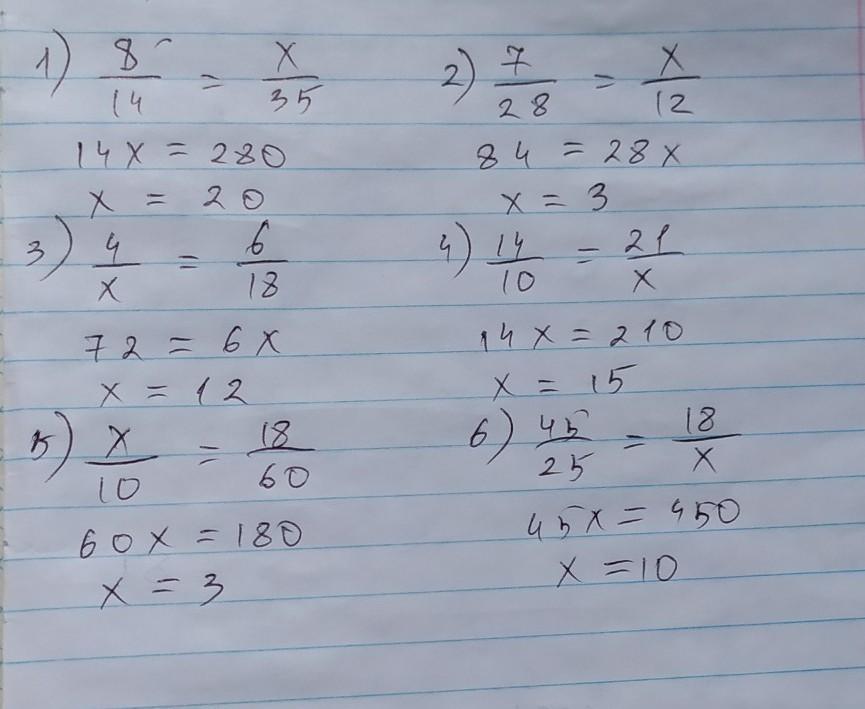 1) 8/14 = x/35
14x = 280
x = 20
2) 7/28 = x/12
84 = 28x
x = 3
3) 4/x = 6/18
72 = 6x
x = 12
4) 14/10 = 21/x
14x = 210
x = 15
5) x/10 = 18/60
60x = 180
x = 3
6) 45/25 = 18/x
45x = 450
x = 10